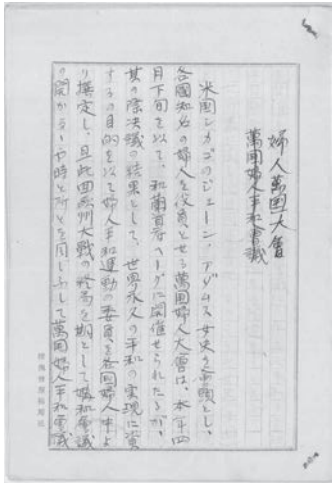 婦人萬国大會
萬国婦人平和會議
米国シカゴのジェーン・アダムス女史を会頭とし、
各国知名の婦人を役員とせる萬国婦人大會は、本年四
月下旬を以て、和蘭国ヘーグに開催せられたるが、
其の際決議の結果として、世界永久の平和の実現に資
するの目的を以て婦人平和運動の委員を各国婦人中よ
り撰定し、且此回欧州大戦の終局を期として媾和會議
の開かるゝや時と所とを同じふして萬国婦人平和會議